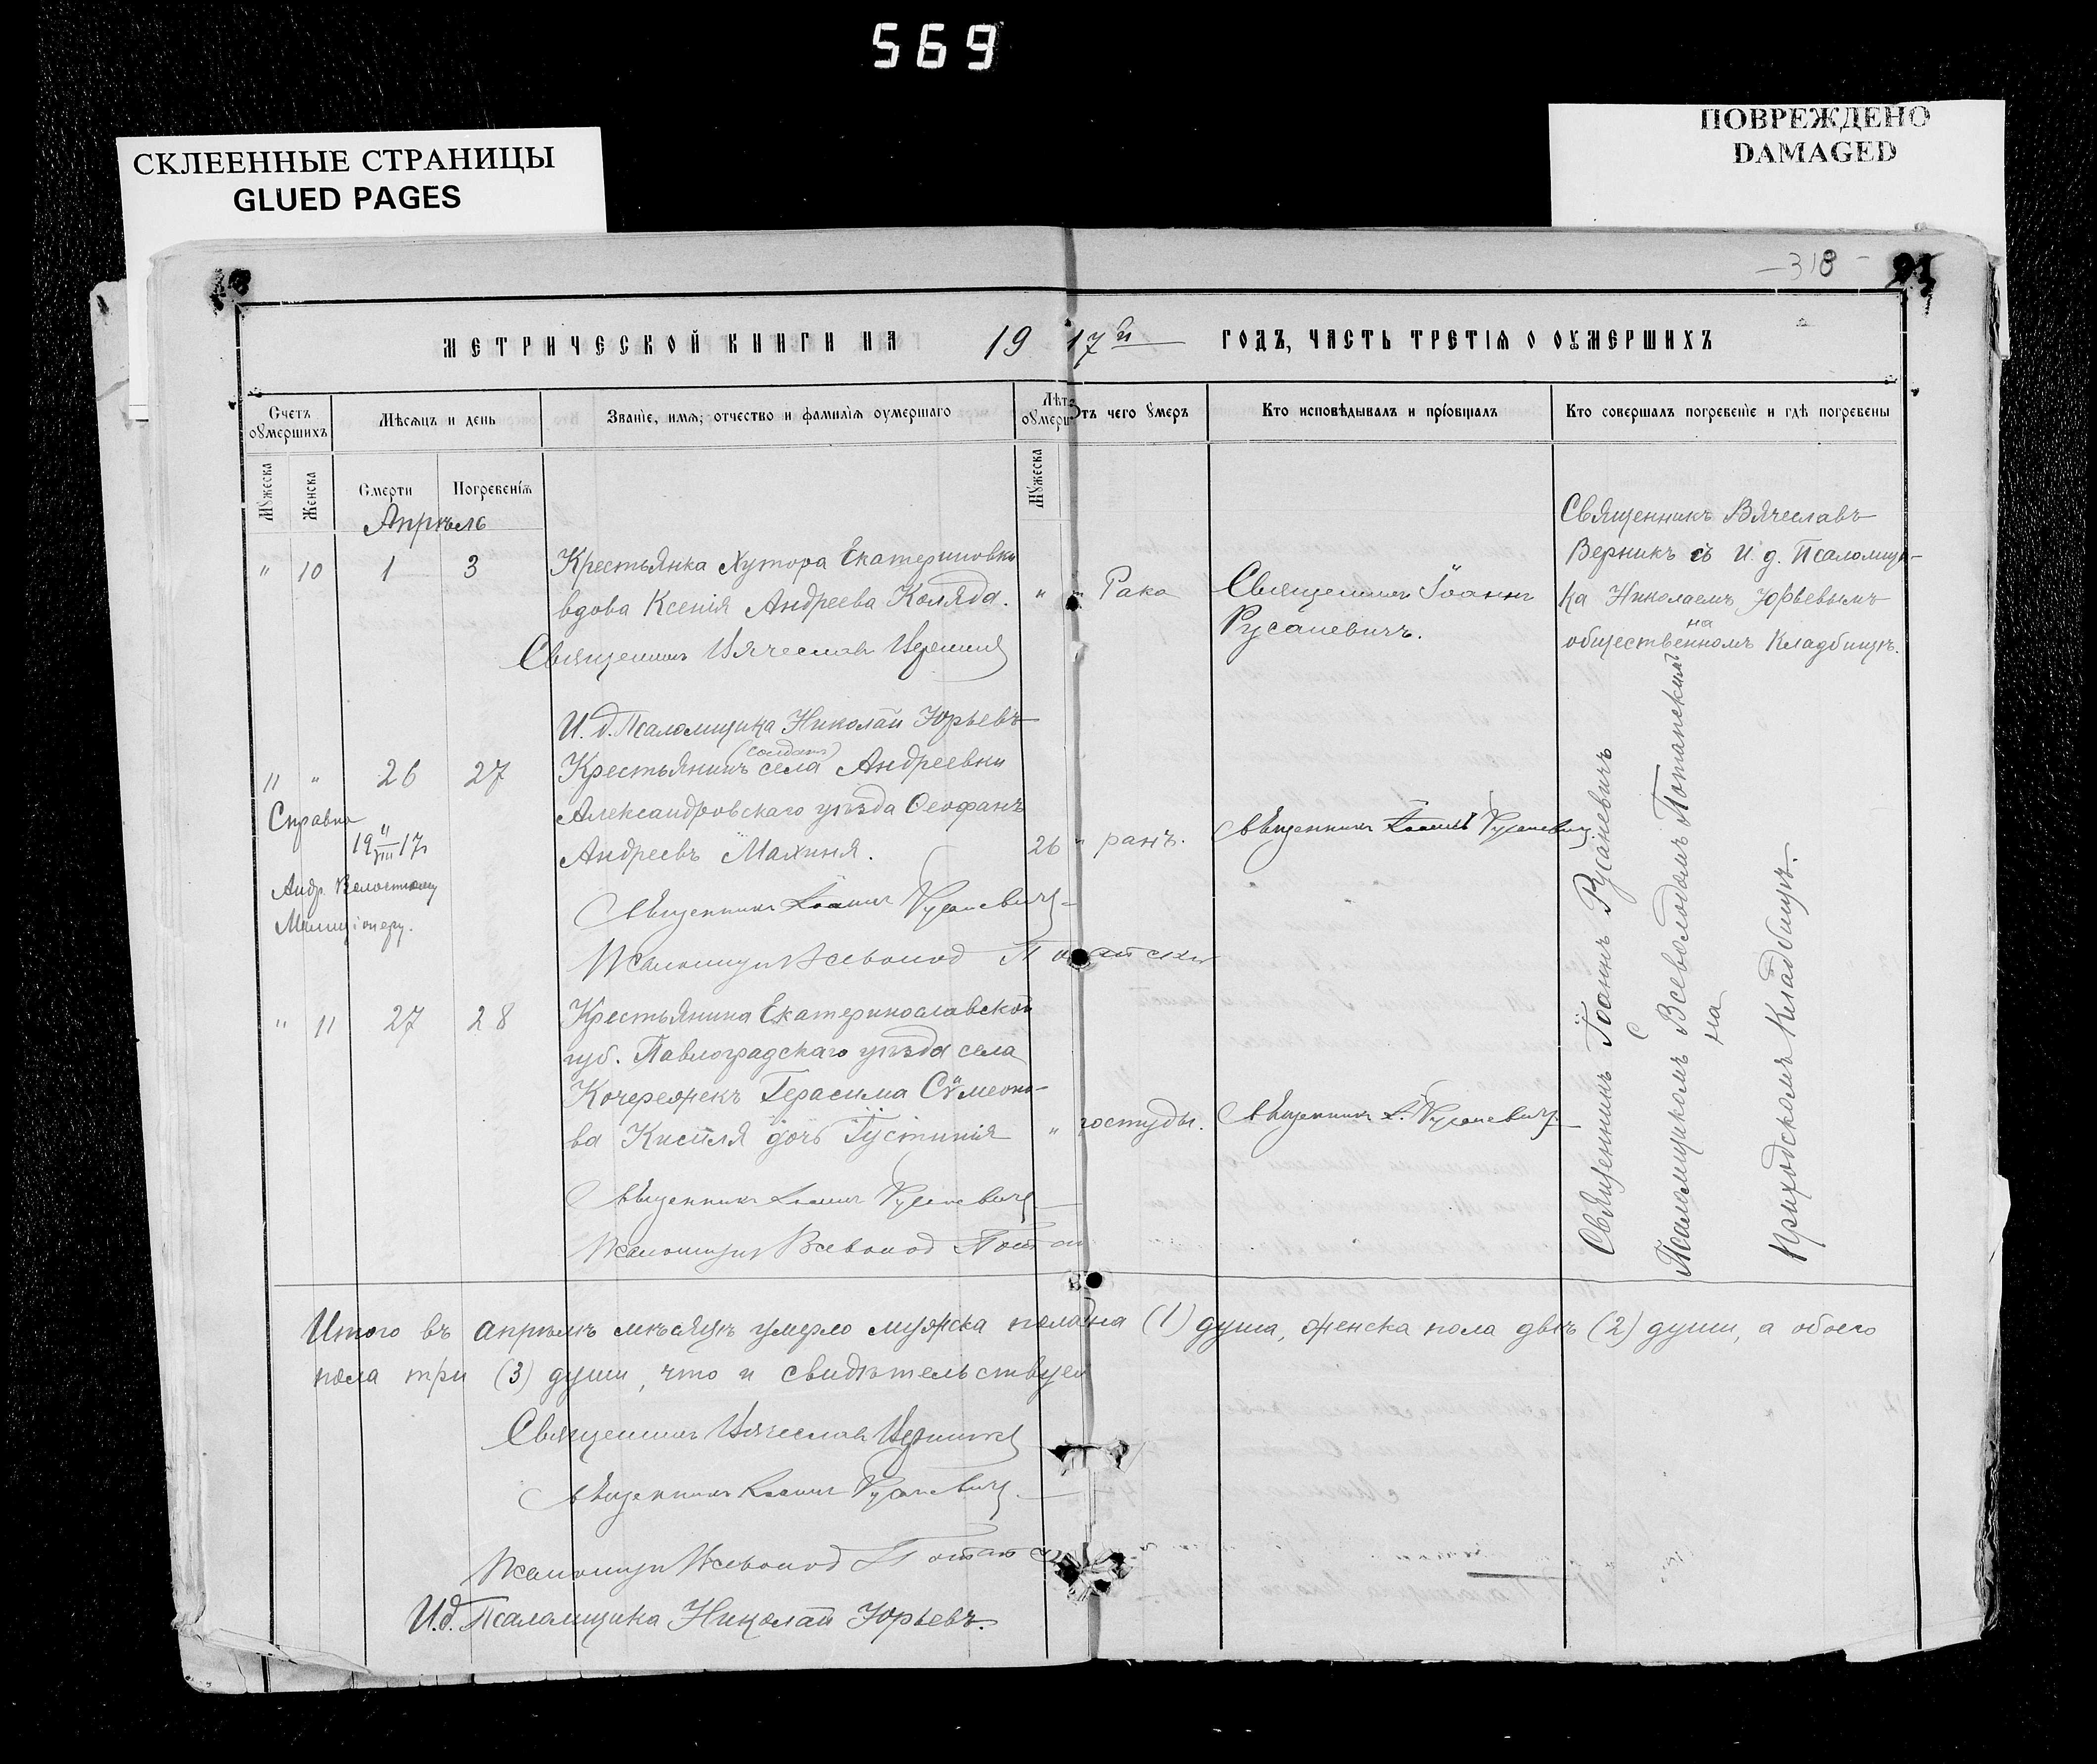 569
СКЛЕЕННЫЕ СТРАНИЦЫ
GLUED PAGES
ПОВРЕЖДЕНО
DAMAGED
— 318 —
МЕТРИЧЕСКОЙ КНИГИ НА 1917й ГОДЪ, ЧАСТЬ ТРЕТІЯ О ОУМЕРШИХЪ
Счетъ оумершихъ
Мѣсяцъ и день
Званіе, имя, отчество и фамилія оумершаго
Лѣт оумерш
Отъ чего умеръ
Кто исповѣдывалъ и пріобщалъ
Кто совершалъ погребеніе и гдѣ погребены
Мужеска
Женска
Смерти
Погребенія
Мужеска
Апрѣль
" 10 1 3
Крестьянка Хутора Екатериновки
вдова Ксенія Андреева Коляда.
"
Рака
Священникъ Іоаннъ
Русаневичъ.
Священникъ Вячеславъ
Верникъ съ И. д. Псаломщи-
ка Николаемъ Юрьевымъ
на
общественномъ Кладбищѣ.
Священникъ Вячеславъ Верникъ
И. д. Псаломщика Николай Юрьевъ
11 " 26 27
(солдатъ)
Крестьянинъ села Андреевки
Александровскаго уѣзда Ѳеофанъ
Андреевъ Махиня.
26 "
ранъ.
Священникъ Іоаннъ Русаневичъ.
Справка
19 11/VIII 17г
Андр. Волостному
Милиціонеру.
Священникъ Іоаннъ Русаневичъ
Псаломщикъ Всеволод
" 11 27 28
Крестьянина Екатеринославской
губ. Павлоградскаго уѣзда села
Кочережекъ Герасима Сѵмеоно-
ва Киселя дочь Іустинія
"
простуды.
Священникъ І. Русаневичъ
Священникъ Іоаннъ Русаневичъ
Псаломщикъ Всеволод
Священникъ Іоаннъ Русаневичъ
с
Псаломщикомъ Всеволодомъ Потапскимъ
на
Приходскомъ Кладбищѣ.
Итого въ апрѣлѣ мѣсяцѣ умерло мужска пола одна (1) душа, женска пола двѣ (2) души, а обоего
пола три (3) души, что и свидѣтельствуем
Священникъ Вячеславъ Верникъ
Священникъ Іоаннъ Русаневичъ
Псаломщикъ Всеволод
И. д. Псаломщика Николай Юрьевъ.